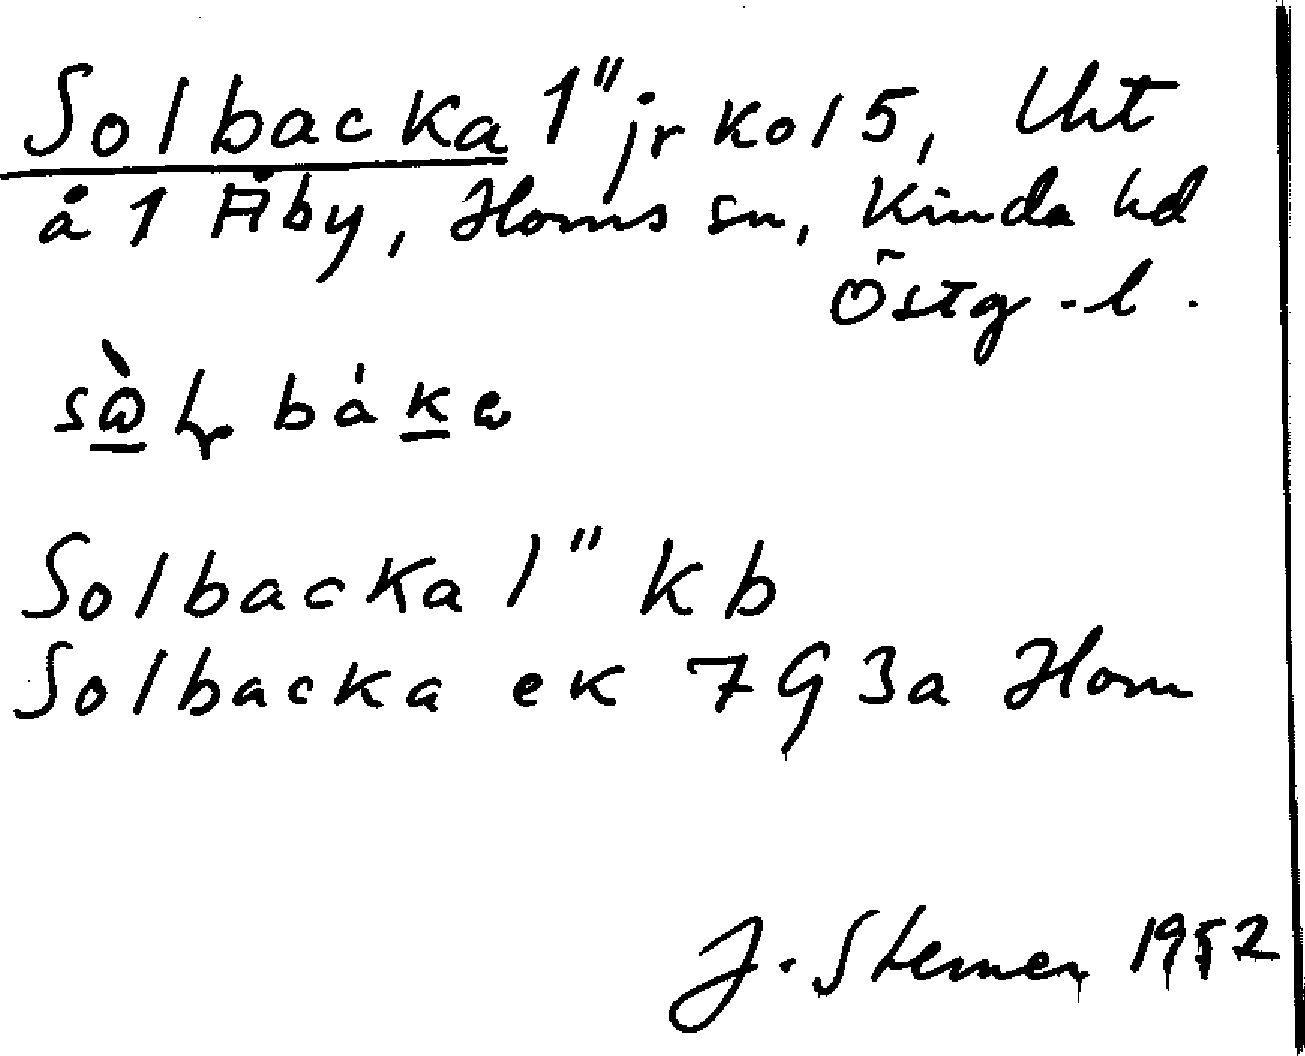 Solbacka 1" jr kol 5, Uht
å 1 Åby, Horns sn, Kinda hd
Östg.-l.
bákα
Solbacka 1" kb
Solbacka ek 7 G 3a Horn
J. Sterner 1952